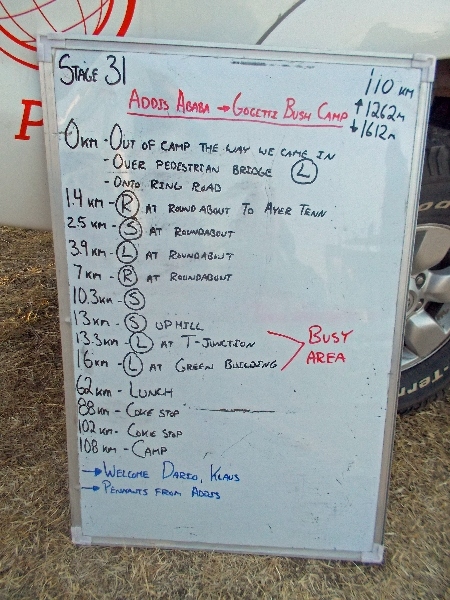 STAGE 31
110 KM
↑1262m
↓1612m
ADDIS ABABA → GOGETTI BUSH CAMP
0KM - OUT OF CAMP THE WAY WE CAME IN
- OVER PEDESTRIAN BRIDGE L
- ONTO RING ROAD
1.4 KM - R AT ROUNDABOUT TO AYER TENN
2.5 KM - S AT ROUNDABOUT
3.9 KM - L AT ROUNDABOUT
7 KM - R AT ROUNDABOUT
10.3 KM - S
13 KM - S UPHILL
13.3 KM - L AT T-JUNCTION
16 KM - L AT GREEN BUILDING
BUSY
AREA
62 KM - LUNCH
88 KM - COKE STOP
102 KM - COKE STOP
108 KM - CAMP
→ WELCOME DARIO, KLAUS
→ PENNANTS FROM ADDIS
P